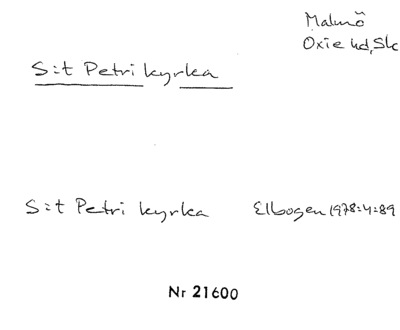 Malmö
Oxie hd, Sk
S:t Petri kyrka
S:t Petri kyrka Elbogen 1978:4:89
Nr 21600